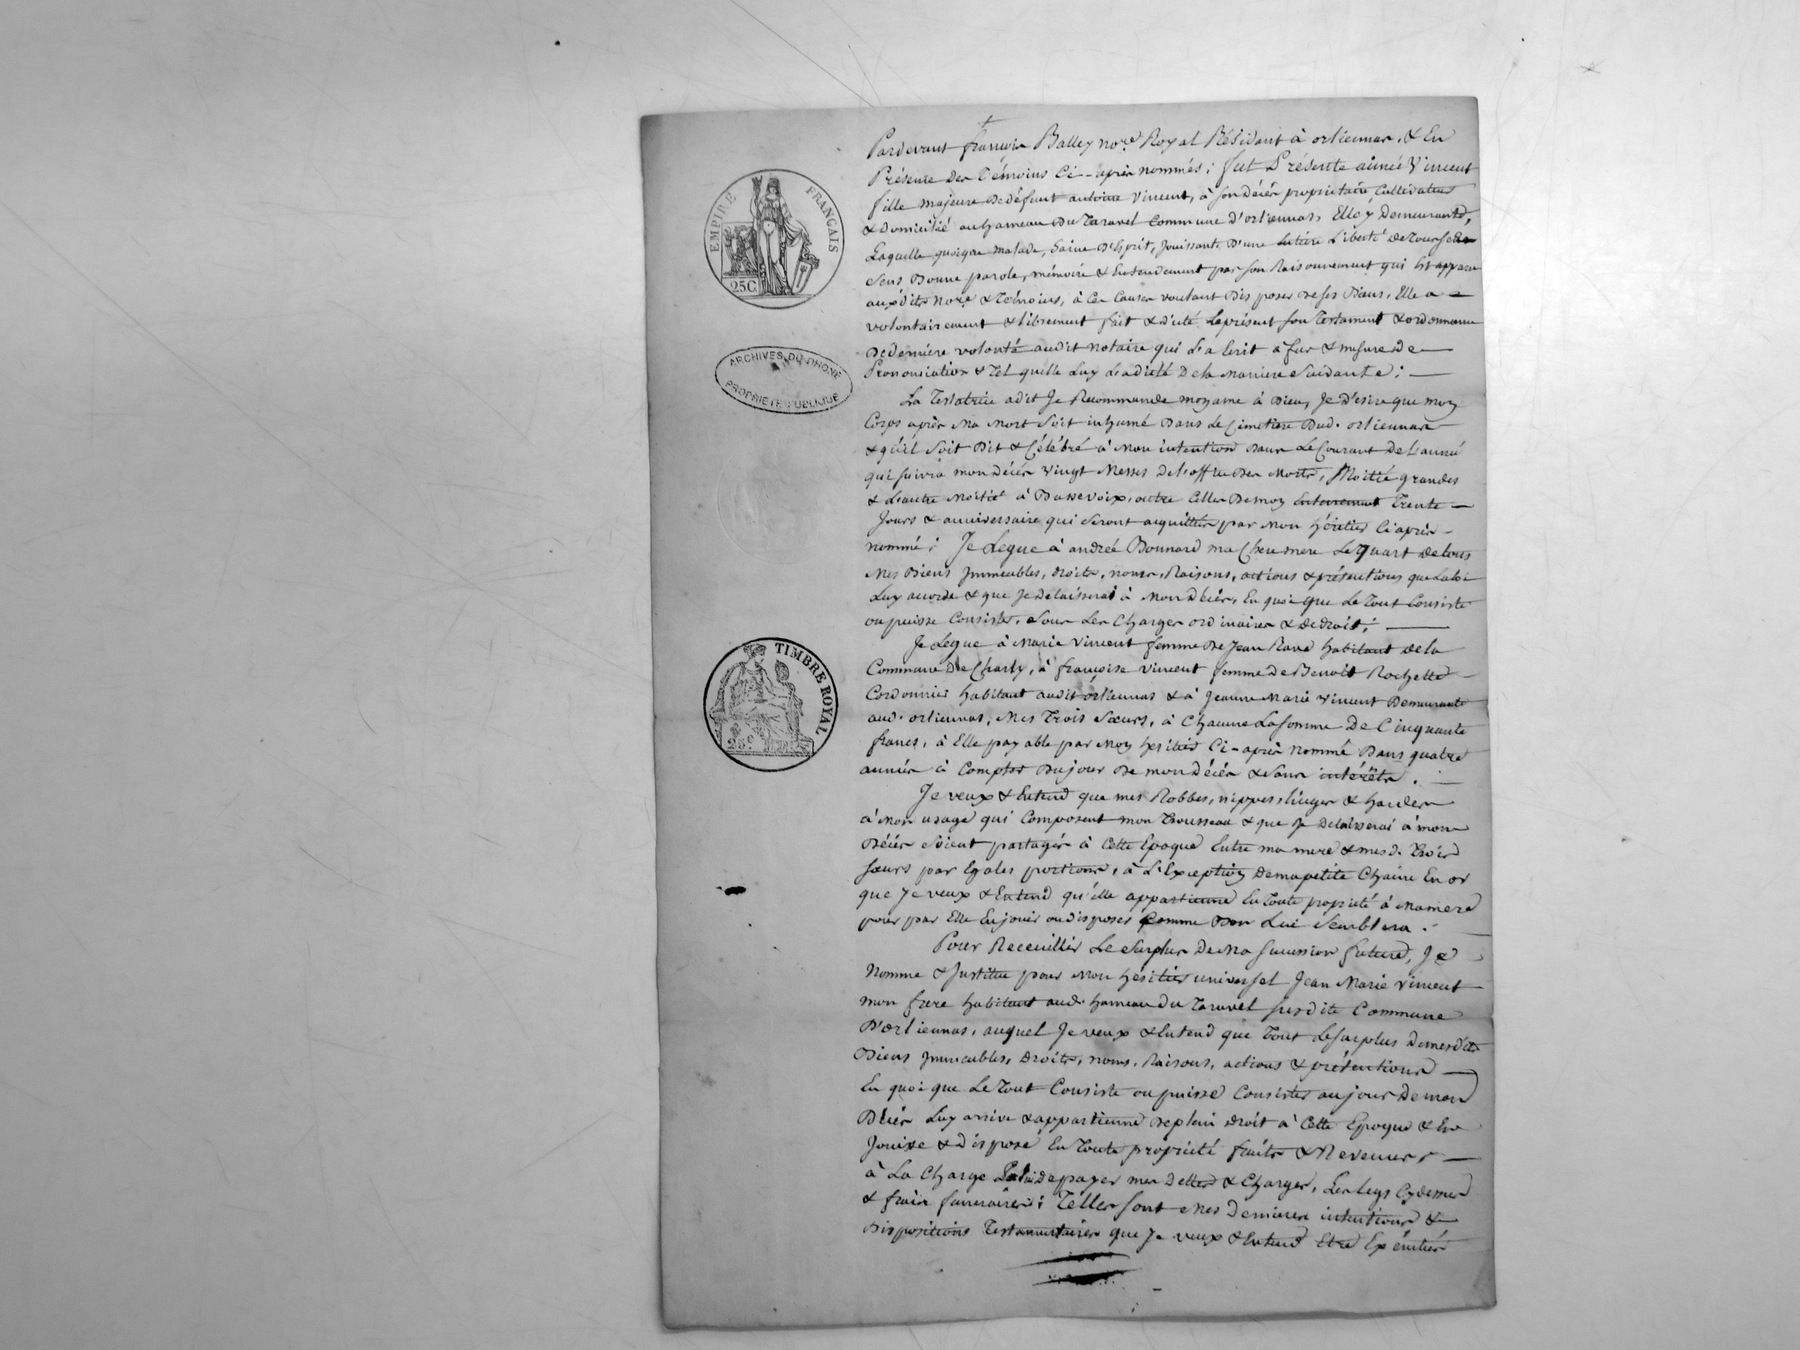 Pardevant françois Balley no.re Royal Résidant à orliennas, & En
Présence des Témoins Ci-après nommés ; fut Présente aimée Vincent
fille majeure de défunt antoine Vincent, à son décès propriétaire Cultivateur
& domicilié au hameau du Taravel Commune d'orliennas, Elle y demeurante,
Laquelle quoique malade, Saine d'Esprit, Jouissante d'une Entière Liberté de tous ses
Sens Bonne parole, mémoire & Entendement par son Raisonnement qui Est apparu
auxdits no.re & Témoins, à Ces Causes voulant Disposer de ses Biens, Elle a
volontairement & librement fait & dicté Le présent son Testament & ordonnance
De dernière volonté audit notaire qui L'a Ecrit à fur & mesure de
Prononciation & Tel quelle Luy L'a dicté De la Manière Suivante :
La Testatrice a dit Je Recommande mon ame à Dieu, Je désire que mon
Corps après Ma Mort Soit inhumé Dans Le Cimetière Dud. orliennas
& qu'il Soit Dit & Célébré à Mon intention Dans Le Courant de L'année
qui suivra mon décès vingt Messes de L'office Des Morts, Moitié grandes
& L'autre Moitié à Basse voix, outre Celles De mon Enterrement Trente
Jours & anniversaire qui Seront acquittées par Mon héritier Ci après
nommé ; Je Legue à andrée Bonnard ma Chere mere Le quart de tous
Mes Biens Immeubles, droits, noms, Raisons, actions & prétentions que La loi
Luy accorde & que Je délaisserai à Mon décès, En quoi que Le Tout Consiste
ou puisse Consister, Sous Les Charges ordinaires & de droit ;
Je Legue à Marie Vincent femme De Jean Rave habitant de la
Commune De Charly, à françoise Vincent femme de Benoit Rochette
Cordonnier habitant audit orliennas & à Jeanne Marie Vincent Demeurante
aud. orliennas, Mes Trois Sœurs, à Chacune La somme De Cinquante
francs, à Elle payable par Mon héritier Ci-après nommé Dans quatre
années à Compter du jour De mon décès & Sans intérêts.
Je veux & Entend que mes Robbes, nippes, linges & hardes
à Mon usage qui Composent mon Trousseau & que Je délaisserai à mon
Décès Soient partagés à Cette Epoque Entre ma mere & mesd. Trois
Sœurs par Egales portions, à L'Exception de ma petite Chaine En or
que Je veux & Entend qu'elle appartienne En Toute propriété à Ma mere
pour par Elle En jouir ou disposer Comme Bon Lui Semblera.
Pour Receuillir Le Surplus De Ma Succession future, Je
Nomme & Institue pour Mon héritier universel Jean Marie Vincent
mon frere habitant aud. hameau du Taravel susdite Commune
D'orliennas, auquel Je veux & Entend que Tout Le surplus de mesdits
Biens Immeubles, Droits, noms, Raisons, actions & prétentions
En quoi que Le Tout Consiste ou puisse Consister au jour De mon
Décès Luy arrive & appartienne De plein droit à Cette Epoque & En
Jouisse & dispose En Toute propriété fruits & Revenus
à La Charge Par lui de payer mes dettes & Charges, Les Legs Cy dessus
& frais funeraires ; Telles sont Mes Dernieres intentions &
Dispositions Testamentaires que Je veux & Entend Etre Exécutées
EMPIRE FRANÇAIS
25C
ARCHIVES DU RHÔNE
PROPRIÉTÉ PUBLIQUE
TIMBRE ROYAL
25c